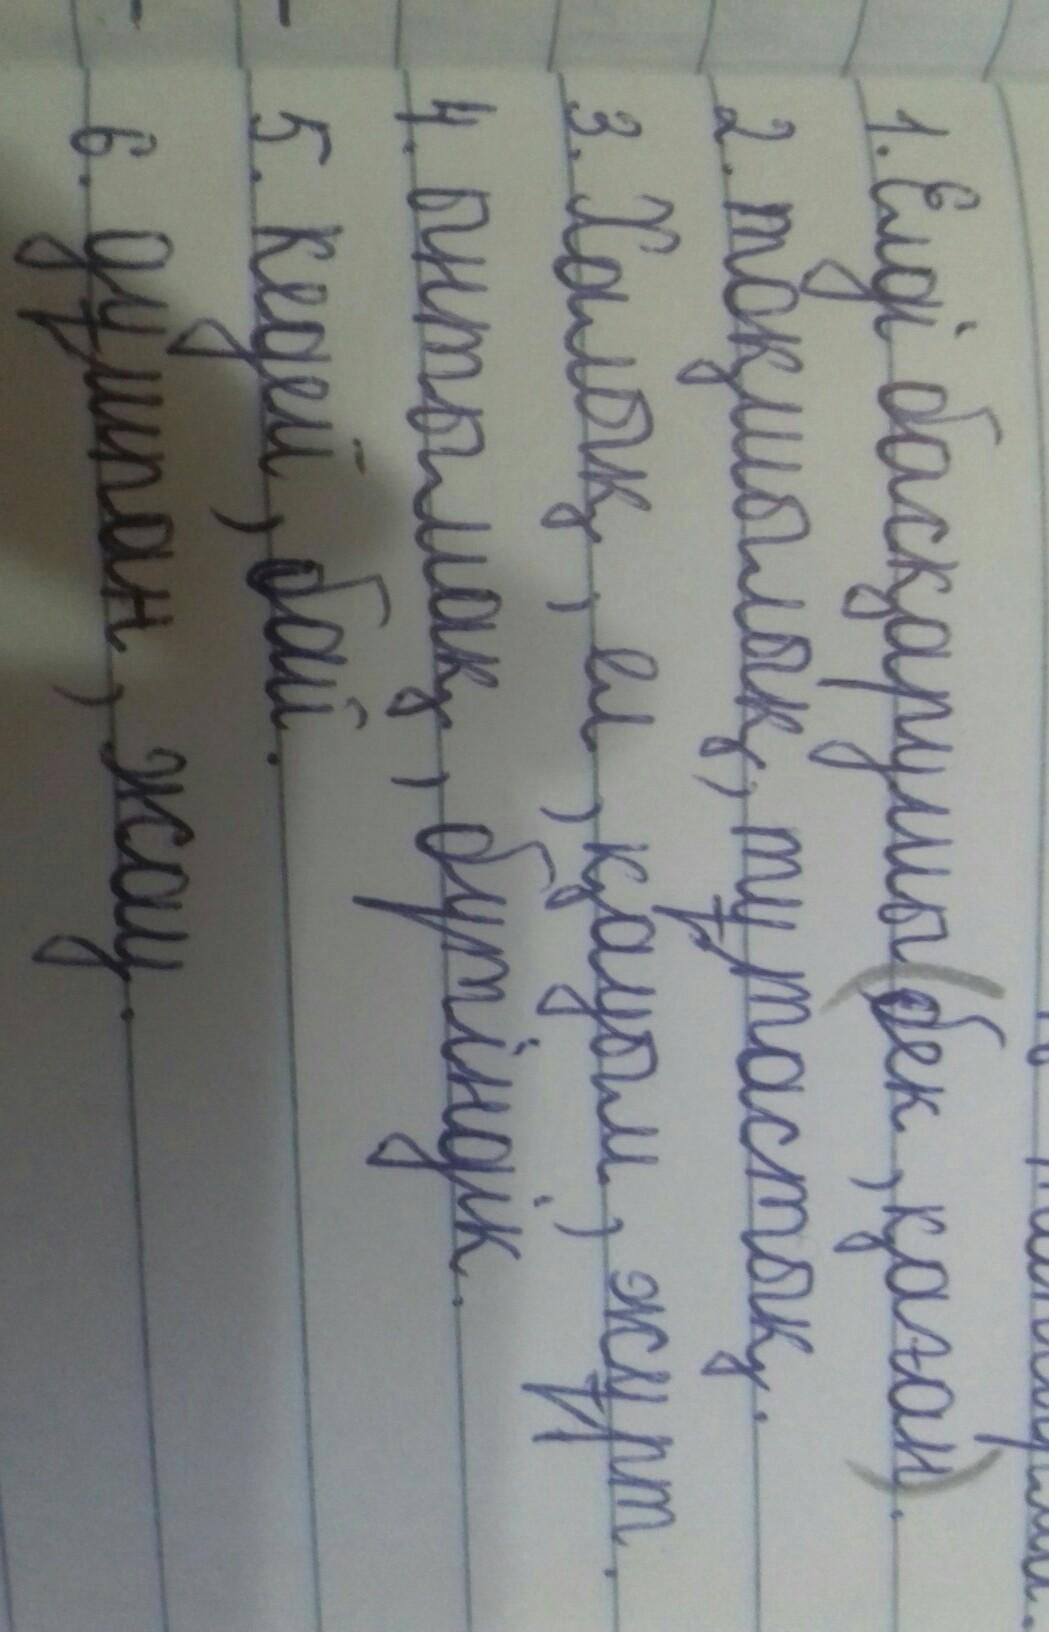 1. Елді басқарушы (бек, қаған).
2. тақшылық, тұтастық.
3. Халық, ел, қауым, жұрт.
4. ынтымақ, бүтіндік.
5. кедей, бай.
6. дұшпан, жау.